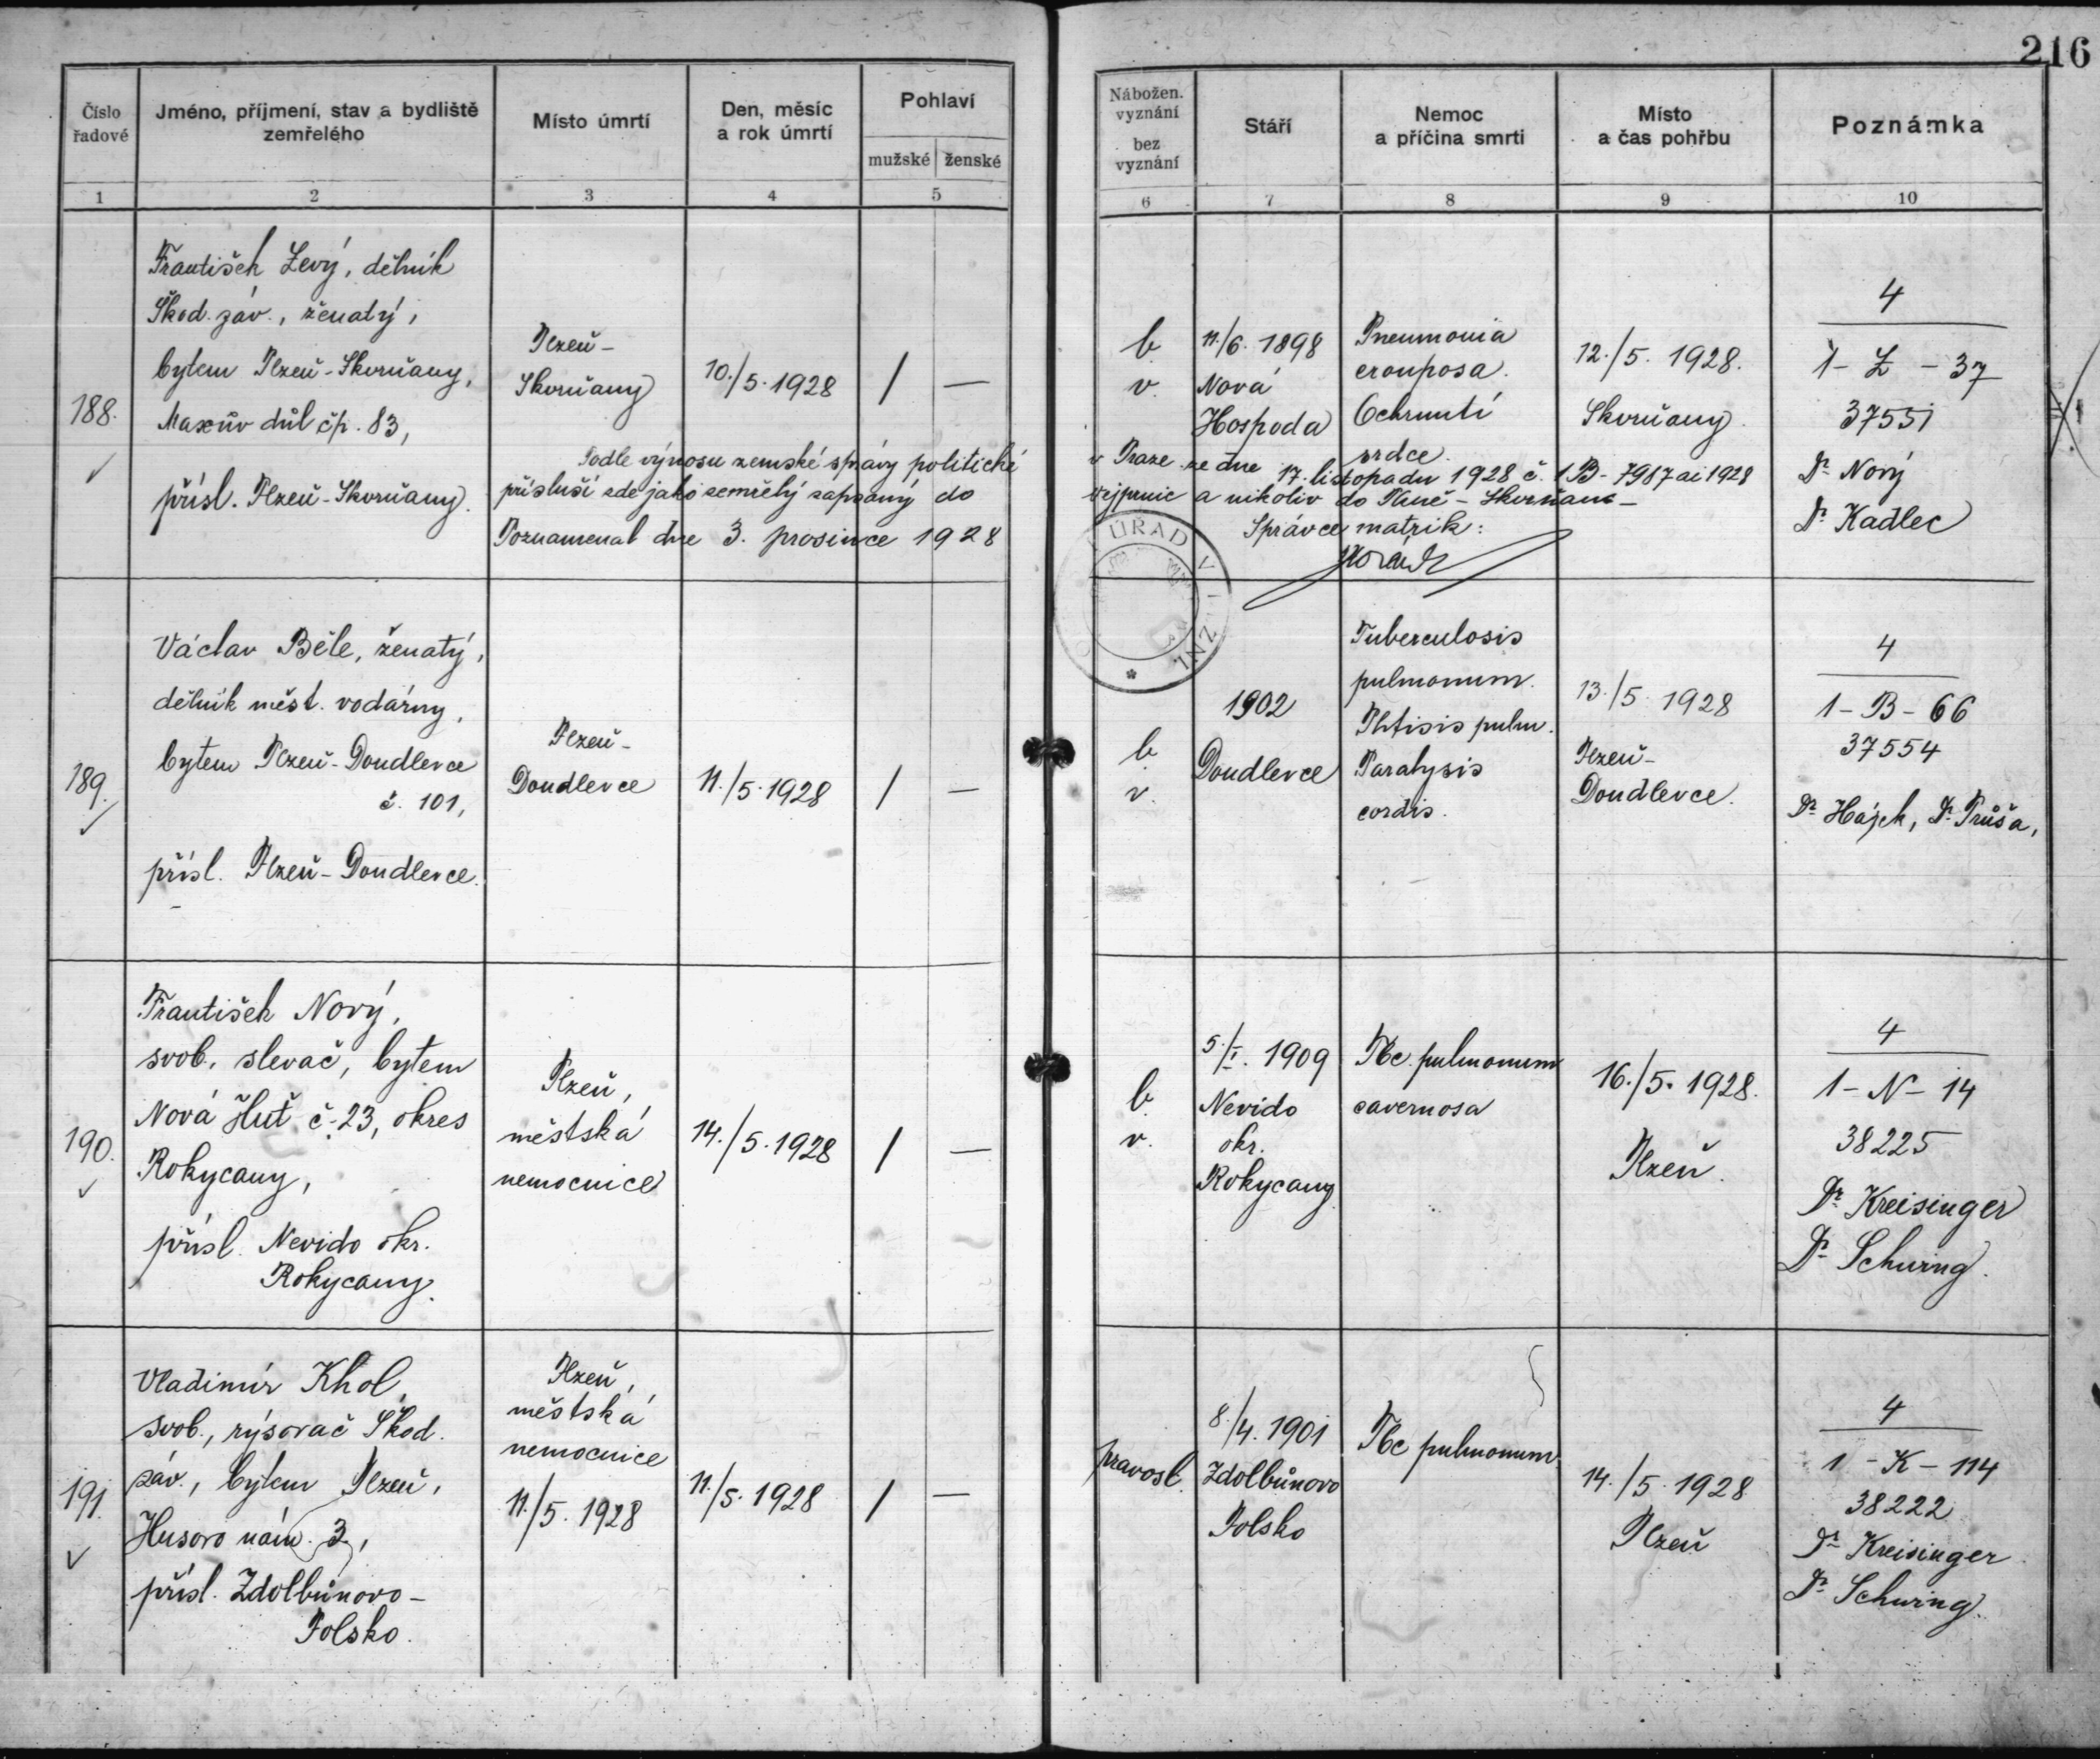 216
Číslo řadové
Jméno, příjmení, stav a bydliště zemřelého
Místo úmrtí
Den, měsíc a rok úmrtí
Pohlaví
mužské
ženské
Nábožen. vyznání
bez vyznání
Stáří
Nemoc a příčina smrti
Místo a čas pohřbu
Poznámka
1
2
3
4
5
6
7
8
9
10
188.
František Levý, dělník
Škod. záv., ženatý,
bytem Plzeň-Skvrňany,
Maxův důl čp. 83,
přísl. Plzeň-Skvrňany.
Plzeň-
Skvrňany
10./5. 1928
/
—
b.
v.
11./6. 1898
Nová
Hospoda
Pneumonia
crouposa.
Ochrnutí
srdce.
12./5. 1928.
Skvrňany.
4
1 - L - 37
37551
Dr Nový
Dr Kadlec
Podle výnosu zemské správy politické
v Praze ze dne 17. listopadu 1928 č. 1B-7987 ai 1928
přísluší zde jako zemřelý zapsaný do
a nikoliv do Plzně-Skvrňan-
Poznamenal dne 3. prosince 1928
Správce matrik:
ÚŘAD V PLZNI
189.
Václav Běle, ženatý,
dělník měst. vodárny,
bytem Plzeň-Doudlevce
č. 101,
přísl. Plzeň-Doudlevce.
Plzeň-
Doudlevce
11./5. 1928
/
—
b.
v.
1902
Doudlevce
Tuberculosis
pulmonum.
Phtisis pulm.
Paralysis
cordis.
13./5. 1928
Plzeň-
Doudlevce.
4
1 - B - 66
37554
Dr Hájek, Dr Průša,
190.
František Nový,
svob., slevač, bytem
Nová Huť č. 23, okres
Rokycany,
přísl. Nevido okr.
Rokycany.
Plzeň,
městská
nemocnice
14./5. 1928
/
—
b.
v.
5./I. 1909
Nevido
okr.
Rokycany.
Tbc pulmonum
cavernosa
16./5. 1928.
Plzeň.
4
1 - N - 14
38225
Dr Kreisinger
Dr Schwing.
191.
Vladimír Khol,
svob., rýsovač Škod.
záv., bytem Plzeň,
Husovo nám. 3.,
přísl. Zdolbunovo-
Polsko.
Plzeň,
městská
nemocnice
11./5. 1928
11./5. 1928
/
—
pravosl.
8./4. 1901
Zdolbunovo
Polsko
Tbc pulmonum.
14./5. 1928
Plzeň
4
1 - K - 114
38222
Dr Kreisinger
Dr Schwing.